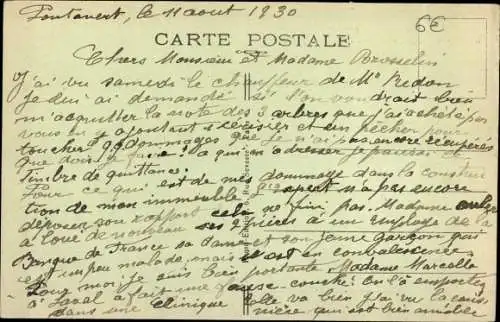 Pontavert, le 11 aout 1930
6€
CARTE POSTALE
Chers Monsieur et Madame Brosselin
J'ai vu samedi le chauffeur de Mr Redon
Je lui ai demandé si l'on voudrait bien
m'acquitter la note des 3 arbres que j'ai acheté par
vous en y ajoutant 1 cerisier et un pecher pour
toucher 99 dommages que je n'ai pas encore récupérés
que dois je faire ? a qui m'adresser je pour
timbre de quittance.
Pour ce qui est de mes dommages dans la construc
tion de mon immeuble expert n'a pas encore
déposer son rapport cela ne fini pas. Madame
a loué de nouveau ses 2 pièces à un employé de la
Banque de France sa dame et son jeune garçon qui
est un peu malade, mais est en convalescence
Pour moi je suis bien portante Madame Marcelle
à Laval a fait une fausse-couche on l'a emportée
dans une clinique elle va bien j'ai vu la
qui est bien aimable